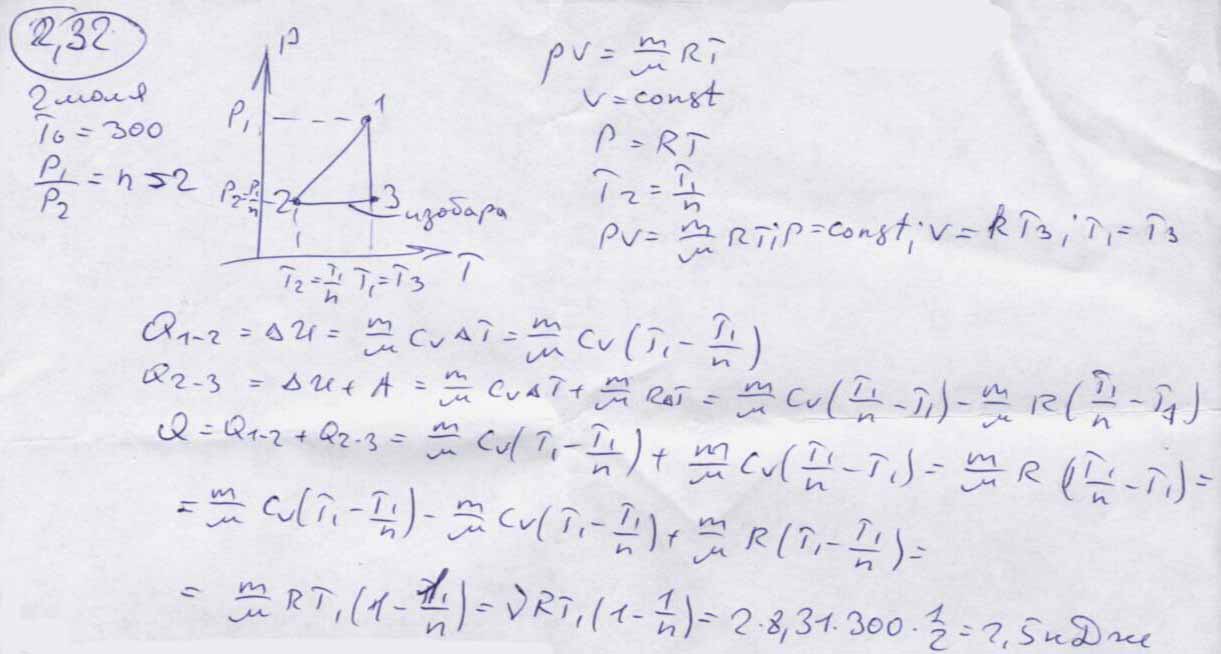 2,32
2 моля
T₀ = 300
P₁/P₂ = n = 2
P
P₁
1
P₂ = P₁/n
2
3
изобара
T₂ = T₁/n T₁ = T₃ T
PV = m/μ RT
V = const
P = RT
T₂ = T₁/n
PV = m/μ RT; P = const; V = RT₃; T₁ = T₃
Q₁₋₂ = ΔU = m/μ Cv ΔT = m/μ Cv (T₁ - T₁/n)
Q₂₋₃ = ΔU + A = m/μ CvΔT + m/μ RΔT = m/μ Cv (T₁/n - T₁) - m/μ R (T₁/n - T₁)
Q = Q₁₋₂ + Q₂₋₃ = m/μ Cv (T₁ - T₁/n) + m/μ Cv (T₁/n - T₁) = m/μ R (T₁/n - T₁) =
= m/μ Cv (T₁ - T₁/n) - m/μ Cv (T₁ - T₁/n) + m/μ R (T₁ - T₁/n) =
= m/μ RT₁ (1 - T₁/n) = νRT₁ (1 - 1/n) = 2·8,31·300·1/2 = 2,5кДж